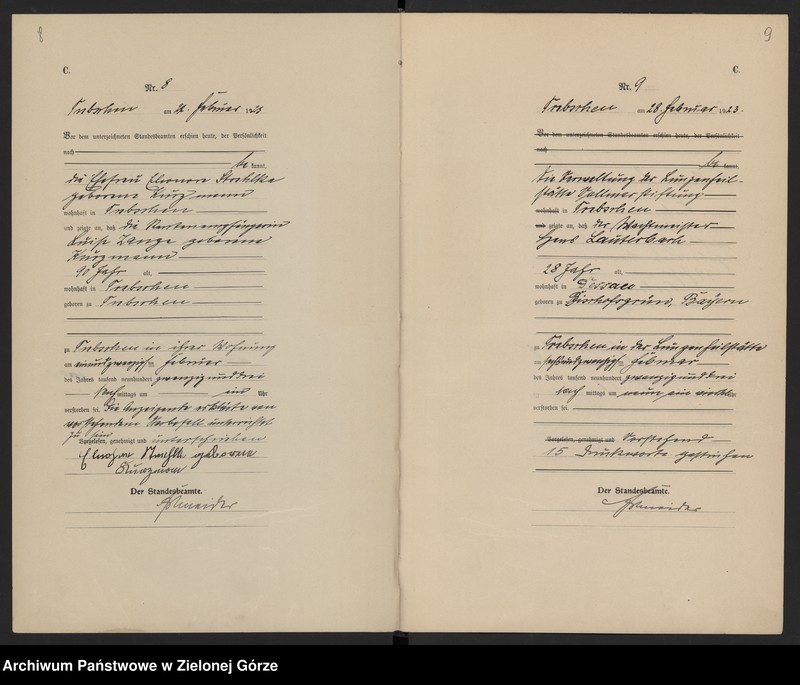 8
C.
Nr. 8
Trebschen am 22. Februar 1923
Vor dem unterzeichneten Standesbeamten erschien heute, der Persönlichkeit
nach
be kannt,
die Ehefrau Eleonore Strahlke
geborene Kurzmann
wohnhaft in Trebschen
und zeigte an, daß die Rentenempfängerin
Luise Lange geborene
Kurzmann
90 Jahr alt,
wohnhaft in Trebschen
geboren zu Trebschen
zu Trebschen in ihrer Wohnung
am einundzwanzigsten Februar
des Jahres tausend neunhundert zwanzig und drei
Nach mittags um ein Uhr
verstorben sei. Die Anzeigende erklärte von
vorstehendem Sterbefall unterrichtet
zu sein
Vorgelesen, genehmigt und unterschrieben
geborene
Kurzmann
Der Standesbeamte.
Schneider
9
C.
Nr. 9
Trebschen am 28. Februar 1923.
Vor dem unterzeichneten Standesbeamten erschien heute, der Persönlichkeit
nach
be kannt,
Die Verwaltung der Lungenheil-
stätte Vollmerstiftung
wohnhaft in Trebschen
und zeigte an, daß der Wachtmeister
Hans Lauterbach
28 Jahr alt,
wohnhaft in Dessau
geboren zu Bischofsgrün, Bayern
zu Trebschen in der Lungenheilstätte
am sechsundzwanzigsten Februar
des Jahres tausend neunhundert zwanzig und drei
Nach mittags um neun ein viertel Uhr
verstorben sei.
Vorgelesen, genehmigt und Vorstehend
15 Druckworte gestrichen
Der Standesbeamte.
Schneider
Archiwum Państwowe w Zielonej Górze